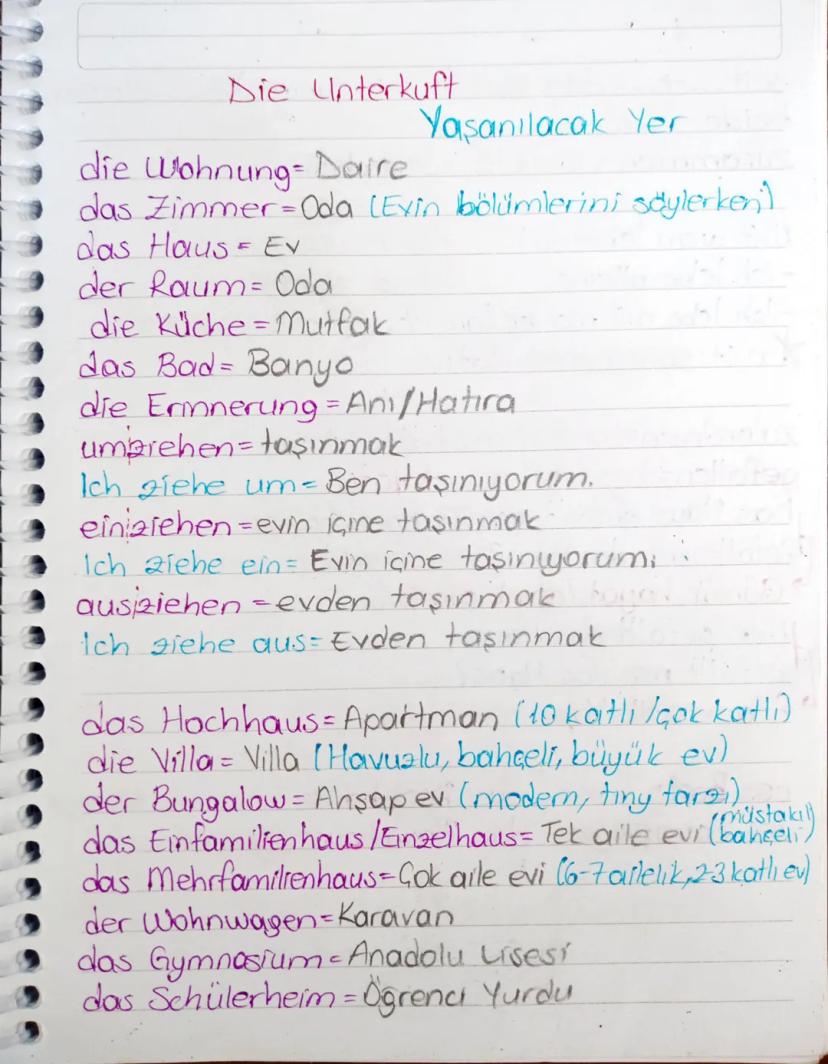 Die Unterkuft
Yaşanılacak Yer
die Wohnung = Daire
das Zimmer = Oda (Evin bölümlerini söylerken)
das Haus = Ev
der Raum = Oda
die Küche = Mutfak
das Bad = Banyo
die Erinnerung = Anı/Hatıra
um|ziehen = taşınmak
Ich ziehe um = Ben taşınıyorum.
ein|ziehen = evin içine taşınmak
Ich ziehe ein = Evin içine taşınıyorum.
aus|ziehen = evden taşınmak
Ich ziehe aus = Evden taşınmak
das Hochhaus = Apartman (10 katlı/çok katlı)
die Villa = Villa (Havuzlu, bahçeli, büyük ev)
der Bungalow = Ahşap ev (modern, tiny tarzı)
das Einfamilienhaus/Einzelhaus = Tek aile evi (müstakil bahçeli)
das Mehrfamilienhaus = Çok aile evi (6-7 ailelik, 2-3 katlı ev)
der Wohnwagen = Karavan
das Gymnasium = Anadolu Lisesi
das Schülerheim = Öğrenci Yurdu